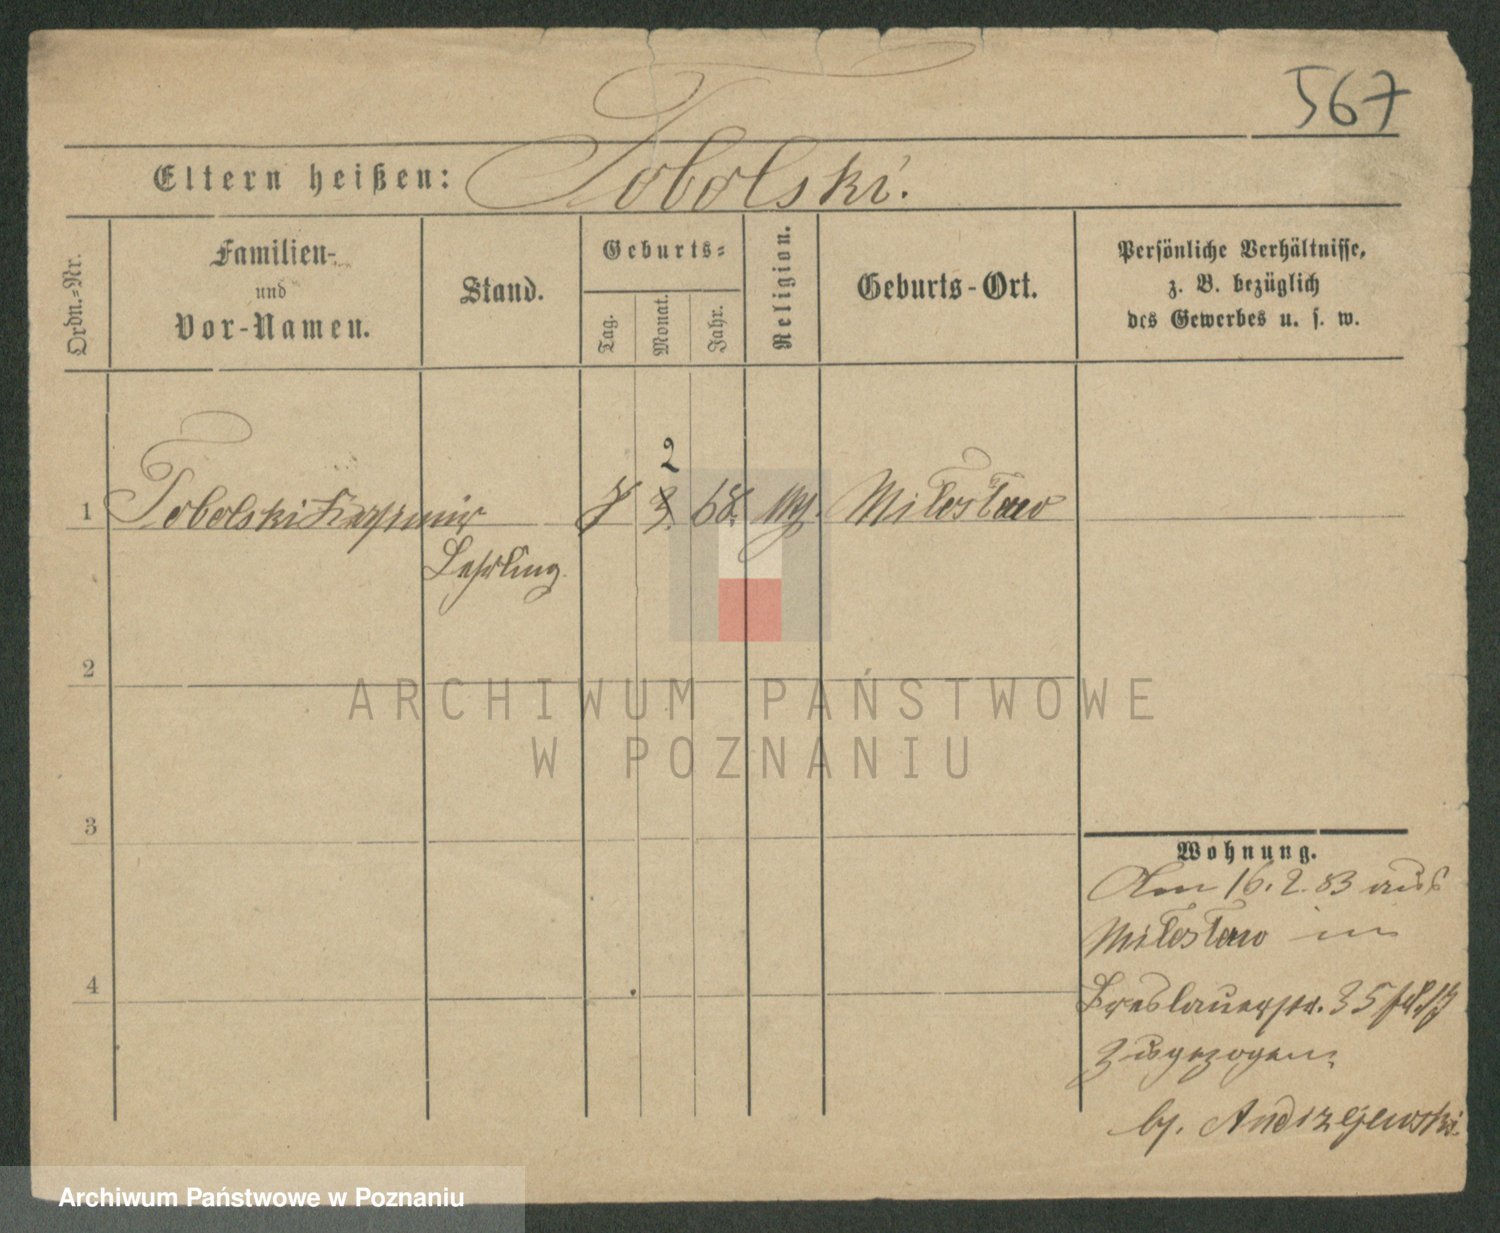 567
Eltern heißen: Tobolski.
Ordn.-Nr.
Familien-
und
Vor-Namen.
Stand.
Geburts-
Tag.
Monat.
Jahr.
Religion.
Geburts-Ort.
Persönliche Verhältnisse,
z. B. bezüglich
des Gewerbes u. s. w.
2
1 Tobolski Kazymir 3. 68. Miłosław
Lehrling
2
3
4
Wohnung.
Am 16.2.83 aus
Miłosław in
Breslauerstr. 35
zugezogen
by. Andrzejewski.
ARCHIWUM PAŃSTWOWE
W POZNANIU
Archiwum Państwowe w Poznaniu